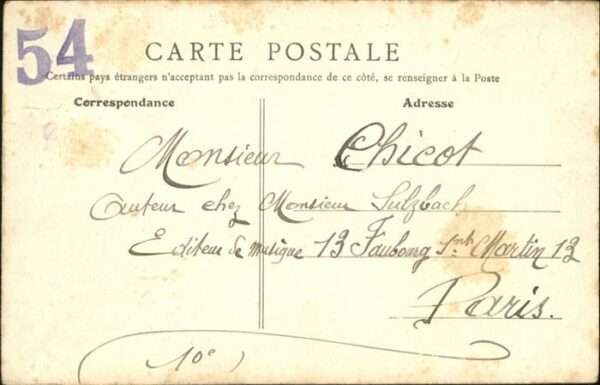 54
CARTE POSTALE
Certains pays étrangers n'acceptant pas la correspondance de ce côté, se renseigner à la Poste
Correspondance Adresse
Monsieur Chicot
auteur chez Monsieur Sulzbach
Editeur de musique 13 Faubourg Snt Martin 13
Paris.
10e